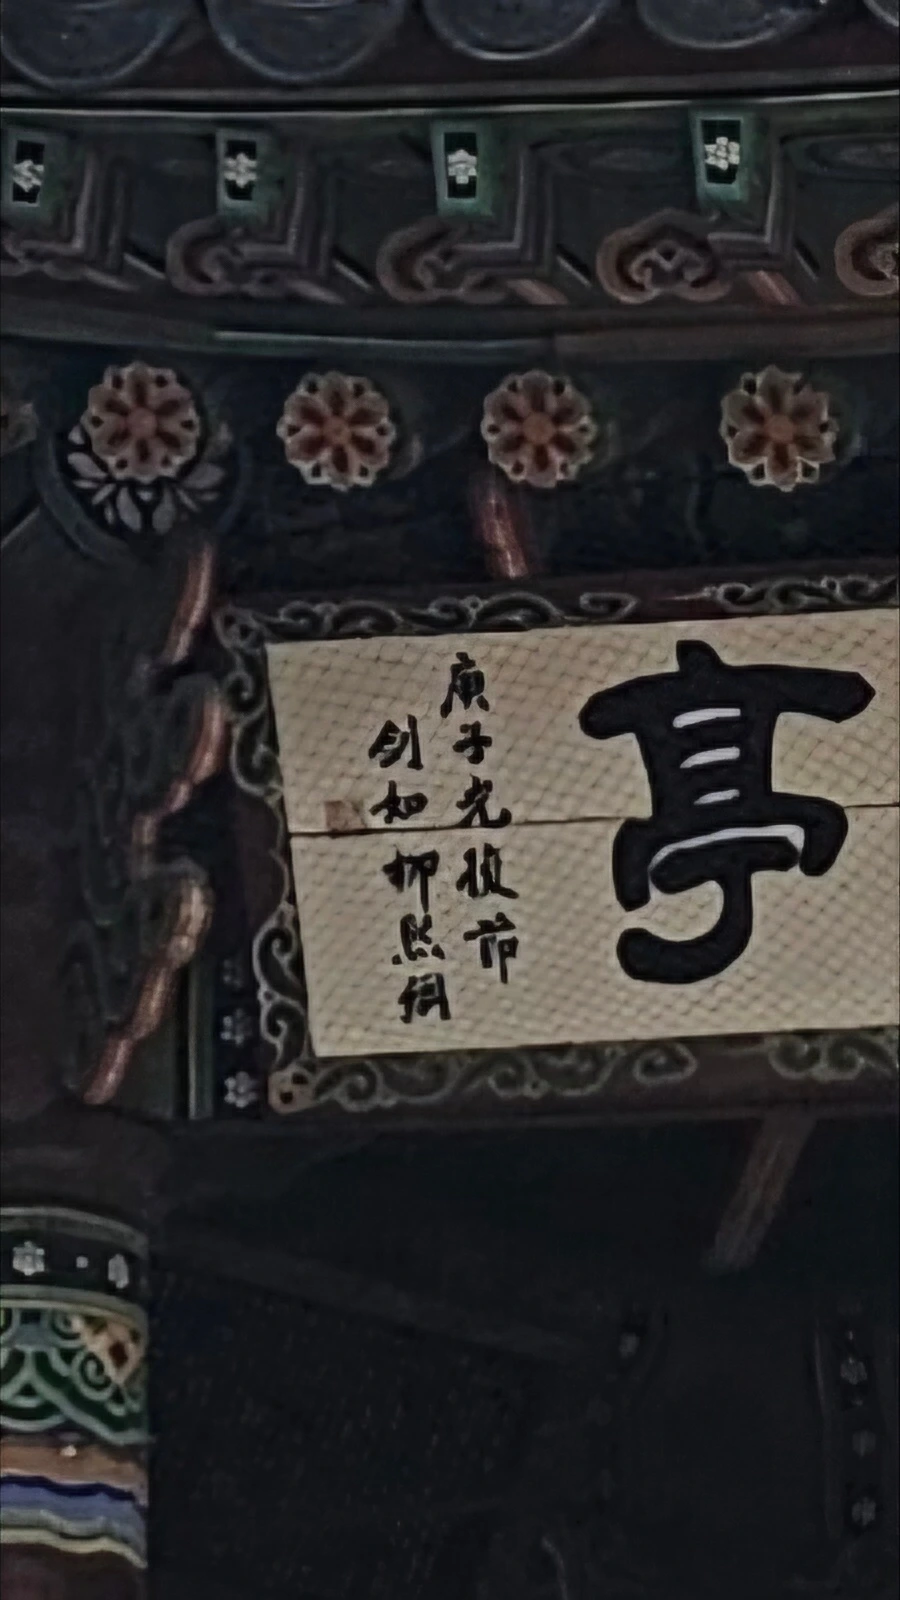 亭
庚子光復節
剑如 柳熙